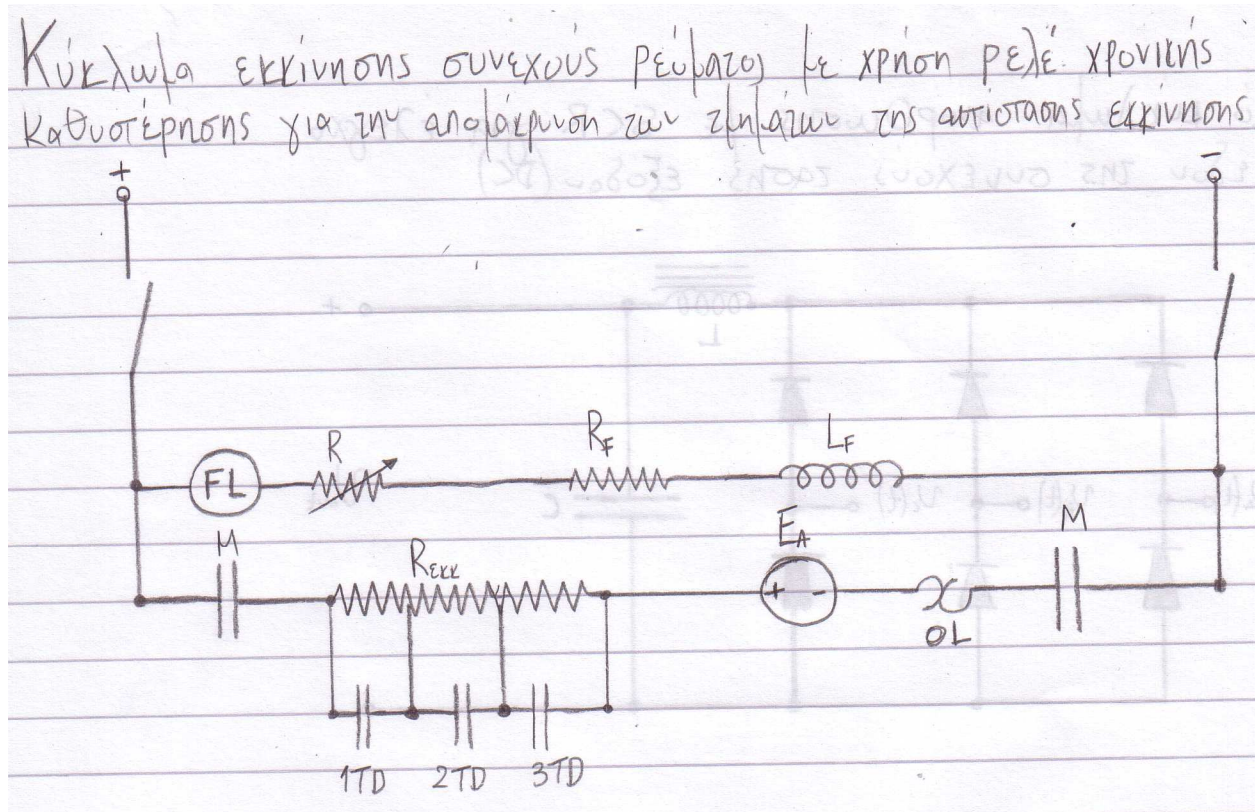 Κύκλωμα εκκίνησης συνεχούς ρεύματος με χρήση ρελέ χρονικής
καθυστέρησης για την απομάκρυνση των τμημάτων της αντίστασης εκκίνησης
+ -
R R_F L_F
FL
M R_εκκ E_A M
+ -
OL
1TD 2TD 3TD